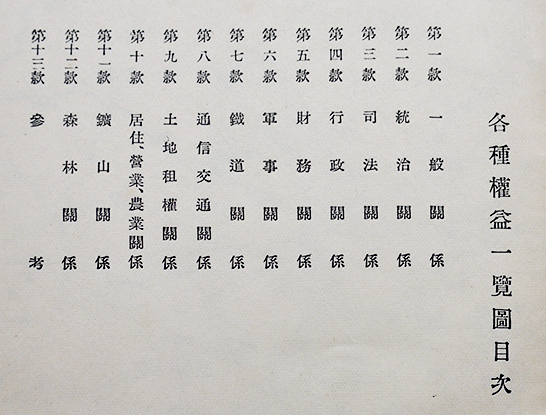 各種權益一覽圖目次
第一款 一般關係
第二款 統治關係
第三款 司法關係
第四款 行政關係
第五款 財務關係
第六款 軍事關係
第七款 鐵道關係
第八款 通信交通關係
第九款 土地租權關係
第十款 居住、營業、農業關係
第十一款 鑛山關係
第十二款 森林關係
第十三款 參考